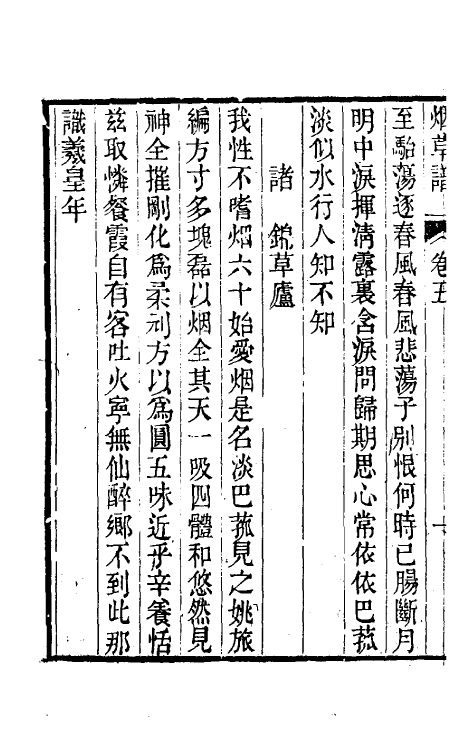 烟草譜 卷五
至駘蕩逐春風春風悲蕩子別恨何時已腸斷月
明中淚揮清露裏含淚問歸期思心常依依巴菰
淡似水行人知不知
諸 錦草廬
我性不嗜烟六十始愛烟是名淡巴菰見之姚旅
編方寸多塊磊以烟全其天一吸四體和悠然見
神全摧剛化為柔刓方以為圓五味近乎辛養恬
兹取憐餐霞自有客吐火寧無仙醉鄉不到此那
識羲皇年